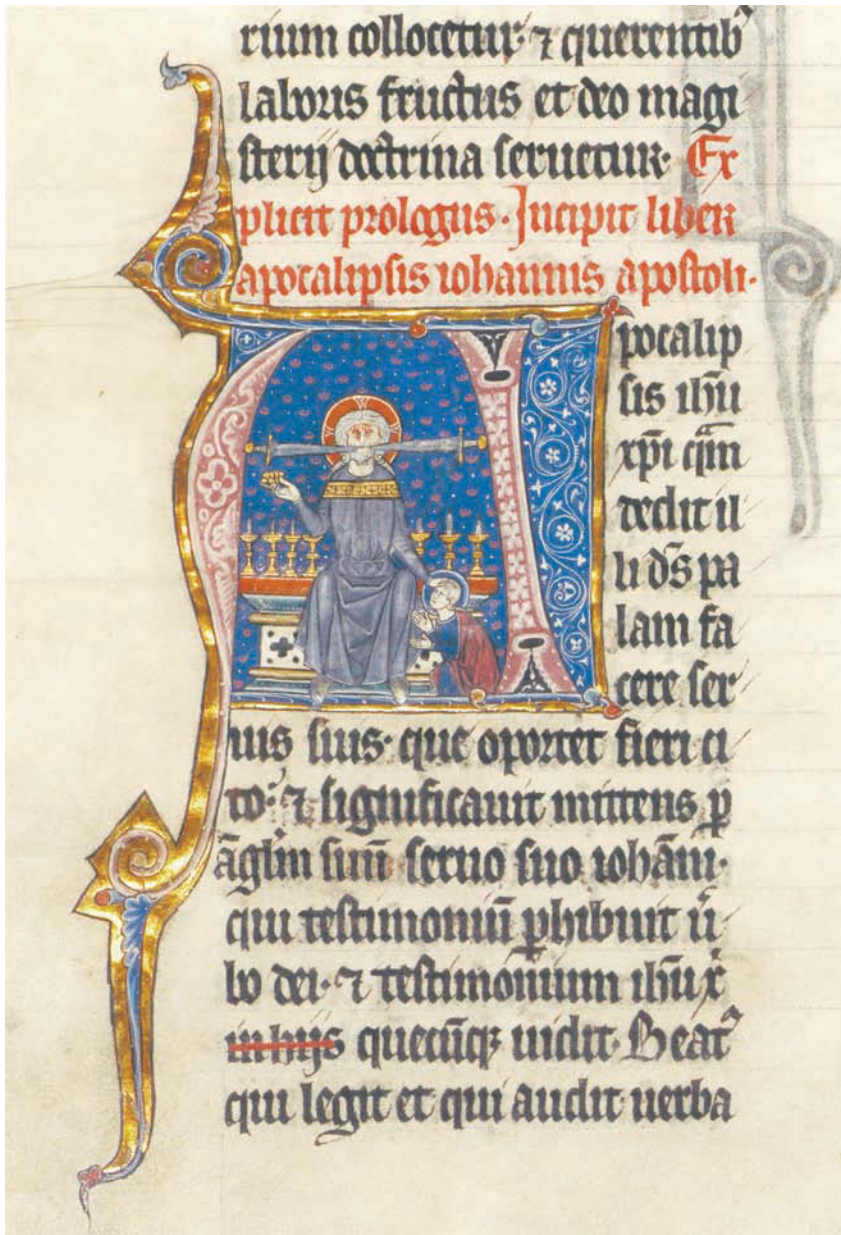 rium collocetur· ⁊ querentibꝰ
laboris fructus et deo magi
sterij doctrina seruetur· Ex
plicit prologus · Incipit liber
apocalipsis iohannis apostoli·
Apocalip
sis ihū
xp̄i qͣm
dedit il
li dn̄s pa
lam fa
cere ser
uis suis· que oportet fieri ci
to· ⁊ significauit mittens ꝑ
āgl̄m suū seruo suo iohāni·
qui testimoniū ꝑhibuit ū
bo dei· ⁊ testimonium ihū xp̄i
in hijs quecūqꝫ uidit· Beatꝰ
qui legit et qui audit uerba